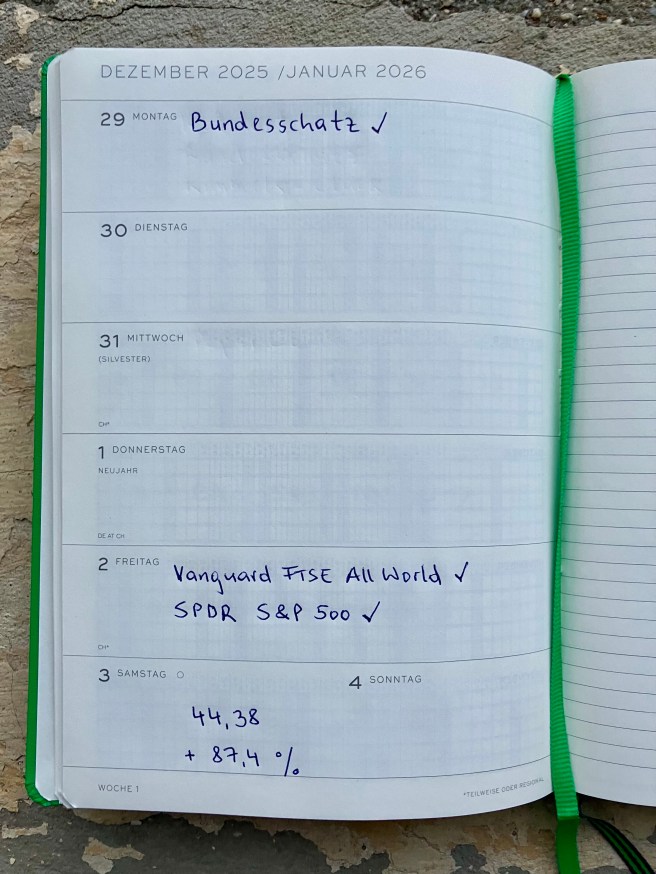 DEZEMBER 2025 /JANUAR 2026
29 MONTAG Bundesschatz ✓
30 DIENSTAG
31 MITTWOCH
(SILVESTER)
CH*
1 DONNERSTAG
NEUJAHR
DE AT CH
2 FREITAG Vanguard FTSE All World ✓
SPDR S&P 500 ✓
CH*
3 SAMSTAG ○ 4 SONNTAG
44,38
+ 87,4 %
WOCHE 1 *TEILWEISE ODER REGIONAL